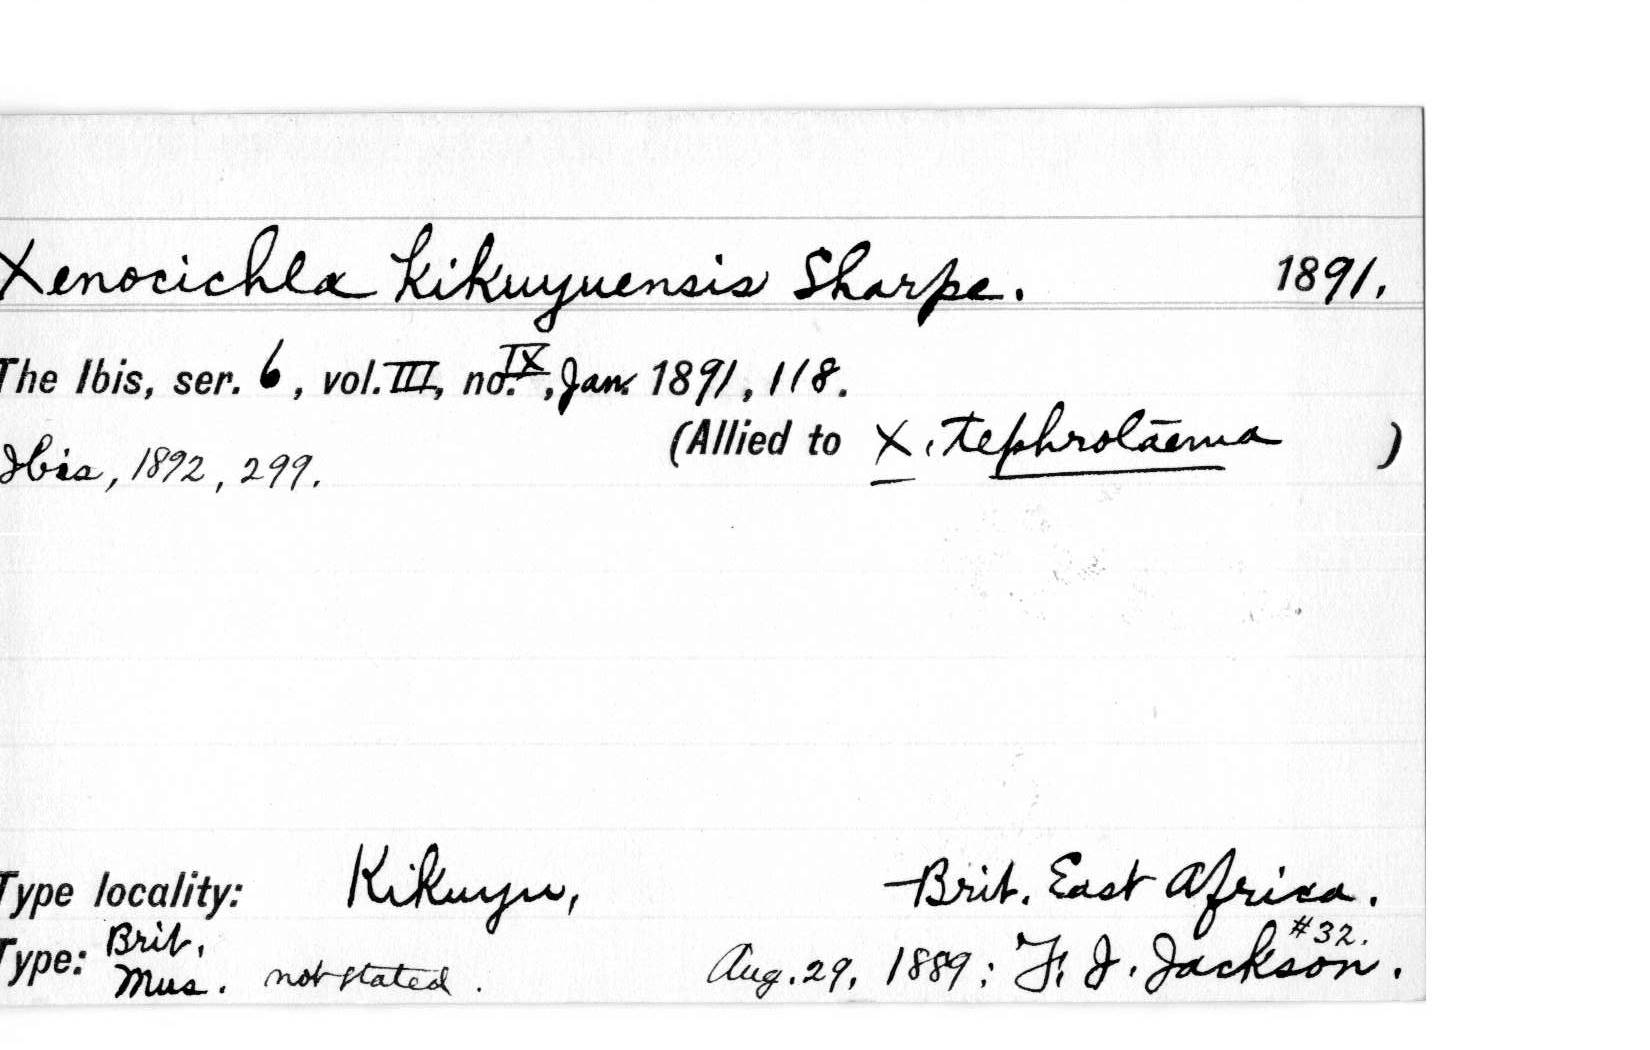 Xenocichla kikuyuensis Sharpe. 1891.
The Ibis, ser. 6, vol. III, no. IX, Jan. 1891, 118.
(Allied to X. tephrolāema )
Ibis, 1892, 299.
Type locality: Kikuyu, Brit. East Africa.
Type: Brit. Mus. not stated. Aug. 29, 1889; F. J. Jackson. #32.